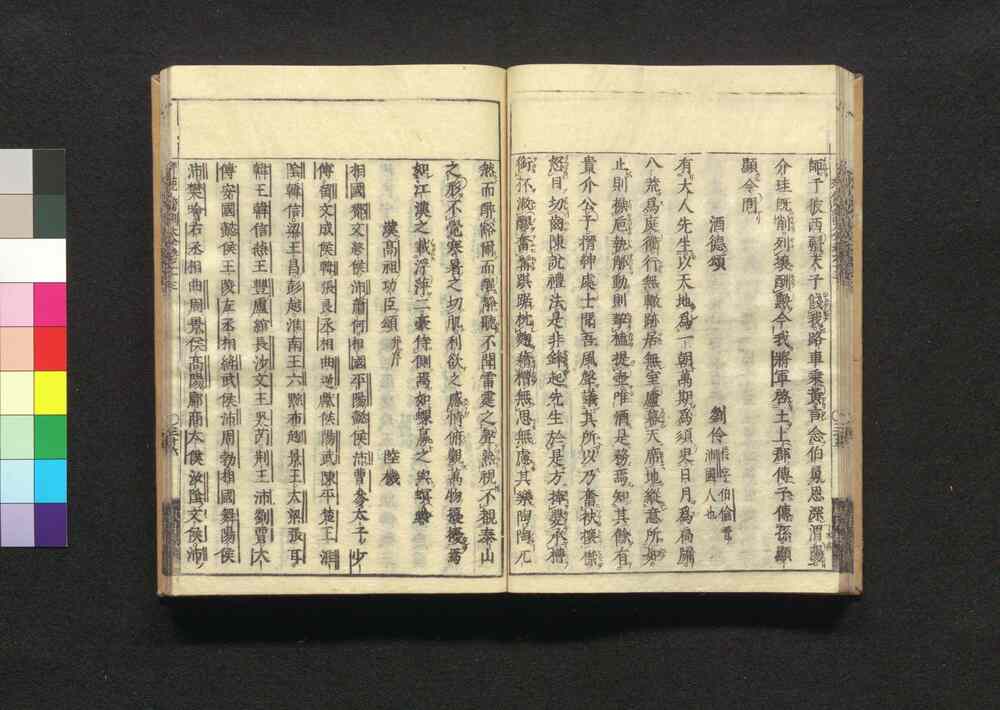 師于彼西疆天子餞我路車乘黃言念伯舅恩深渭陽
介珪既削列壤酬勳今我將軍啓土上郡傳子傳孫顯
顯令問
酒德頌
劉伶
有大人先生以天地為一朝萬期為須臾日月為扃牖
八荒為庭衢行無轍跡居無室廬幕天席地縱意所如
止則操卮執觚動則挈榼提壺唯酒是務焉知其餘有
貴介公子搢紳處士聞吾風聲議其所以乃奮袂攘襟
怒目切齒陳說禮法是非鋒起先生於是方捧甖承槽
銜杯漱醪奮髯踑踞枕麴藉糟無思無慮其樂陶陶兀
然而醉豁爾而醒靜聽不聞雷霆之聲熟視不覩泰山
之形不覺寒暑之切肌利欲之感情俯觀萬物擾擾焉
如江漢之載浮萍二豪侍側焉如蜾蠃之與螟蛉
漢高祖功臣頌
陸機
相國酇文終侯沛蕭何相國平陽懿侯沛曹參太子少
傅留文成侯韓張良丞相曲逆獻侯陽武陳平楚王淮
陰韓信梁王昌邑彭越淮南王六黥布趙景王大梁張耳
韓王韓信燕王豐盧綰長沙文王吳芮荊王沛劉賈太
傅安國懿侯王陵左丞相絳武侯沛周勃相國舞陽侯
沛樊噲右丞相曲周景侯高陽酈商太僕汝陰文侯沛